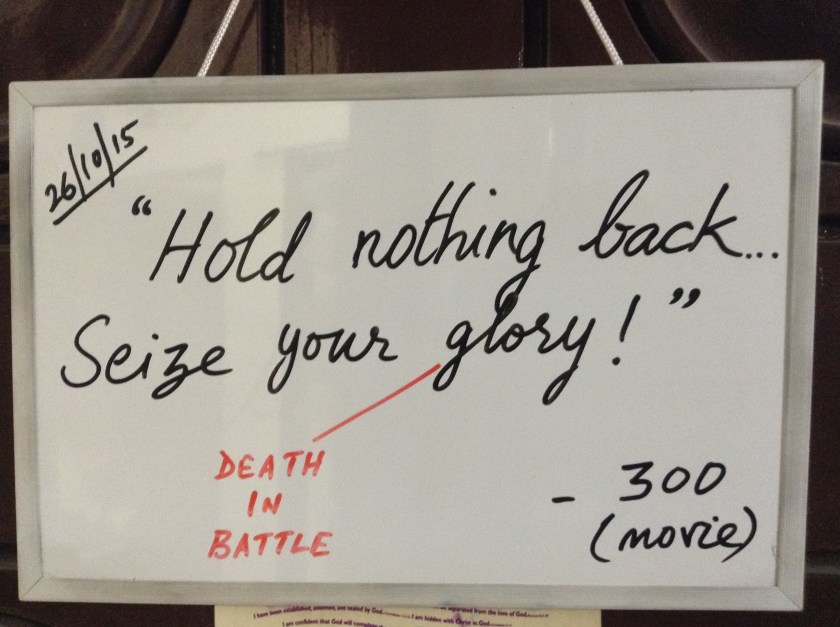 26/10/15
“Hold nothing back...
Seize your glory!”
DEATH
IN
BATTLE
- 300
(movie)
I have been established, anointed, and sealed by God. I am hidden with Christ in God
I am confident that God will